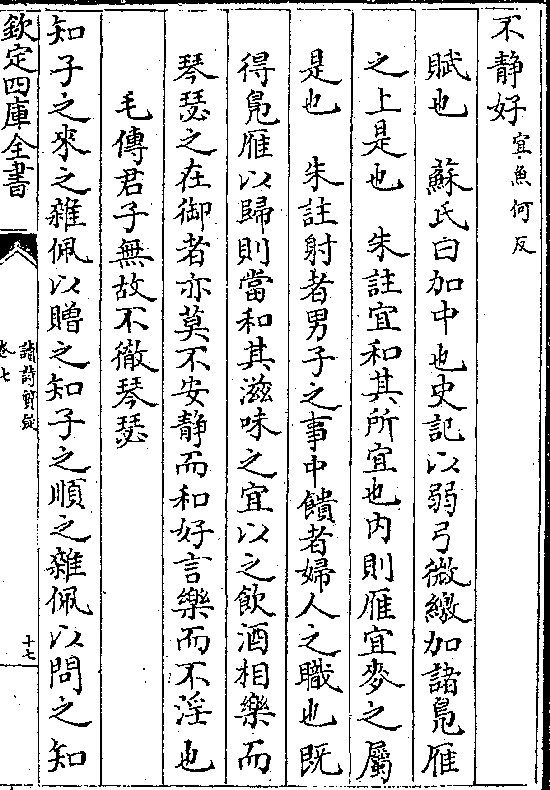 不静好宜魚何反
賦也　蘇氏曰加中也史記以弱弓微繳加諸鳬雁
之上是也　朱註宜和其所宜也内則雁宜麥之屬
是也　朱註射者男子之事中饋者婦人之職也既
得鳬雁以歸則當和其滋味之宜以之飲酒相樂而
琴瑟之在御者亦莫不安静而和好言樂而不淫也
毛傳君子無故不徹琴瑟
知子之來之雜佩以贈之知子之順之雜佩以問之知
欽定四庫全書
讀詩質疑
卷七
十七